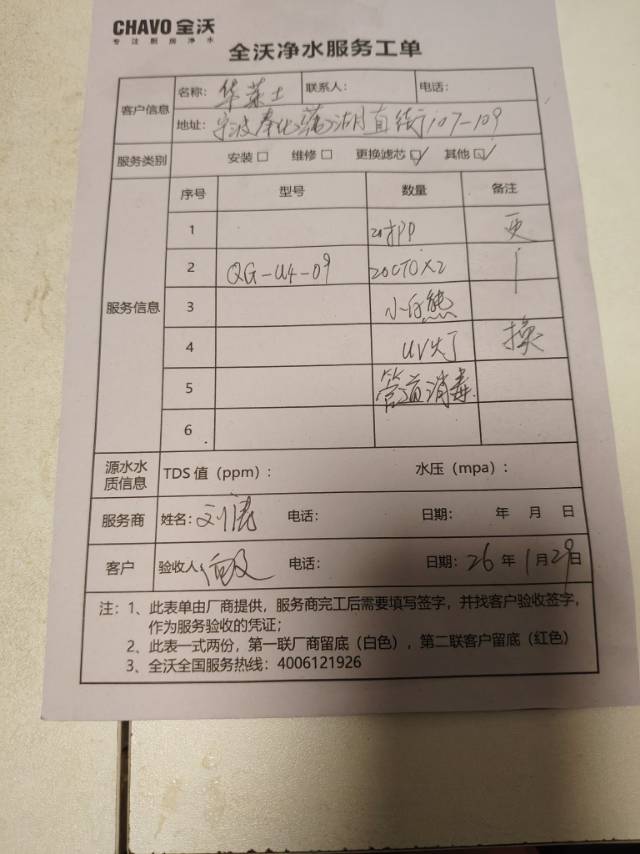 CHAVO 全沃
专注厨房净水
全沃净水服务工单
客户信息 名称: 华莱士 联系人: 电话:
地址: 宁波奉化莼湖直街107-109
服务类别 安装□ 维修□ 更换滤芯☑ 其他☑
服务信息 序号 型号 数量 备注
1 20寸PP 更
2 QG-U4-09 20CTO×2 |
3 小白熊
4 UV灯 换
5 管道消毒
6
源水水质信息 TDS 值（ppm）: 水压（mpa）:
服务商 姓名: 刘 电话: 日期: 年 月 日
客户 验收人: 电话: 日期: 26 年 1 月 29 日
注: 1、此表单由厂商提供，服务商完工后需要填写签字，并找客户验收签字，
作为服务验收的凭证;
2、此表一式两份，第一联厂商留底（白色），第二联客户留底（红色）
3、全沃全国服务热线: 4006121926